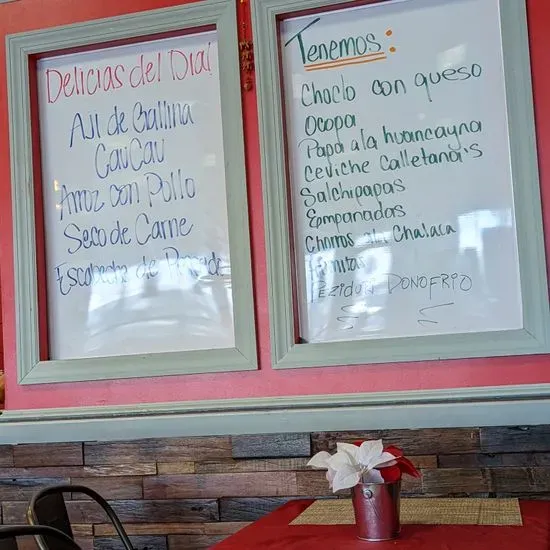 Delicias del Dia!
AJI de Gallina
CauCau
Arroz con Pollo
Seco de Carne
Escabeche de
Tenemos:
Choclo con queso
Ocopa
Papa a la huancayna
Ceviche calletana's
Salchipapas
Empanadas
Choros ala Chalaca
DONOFRIO